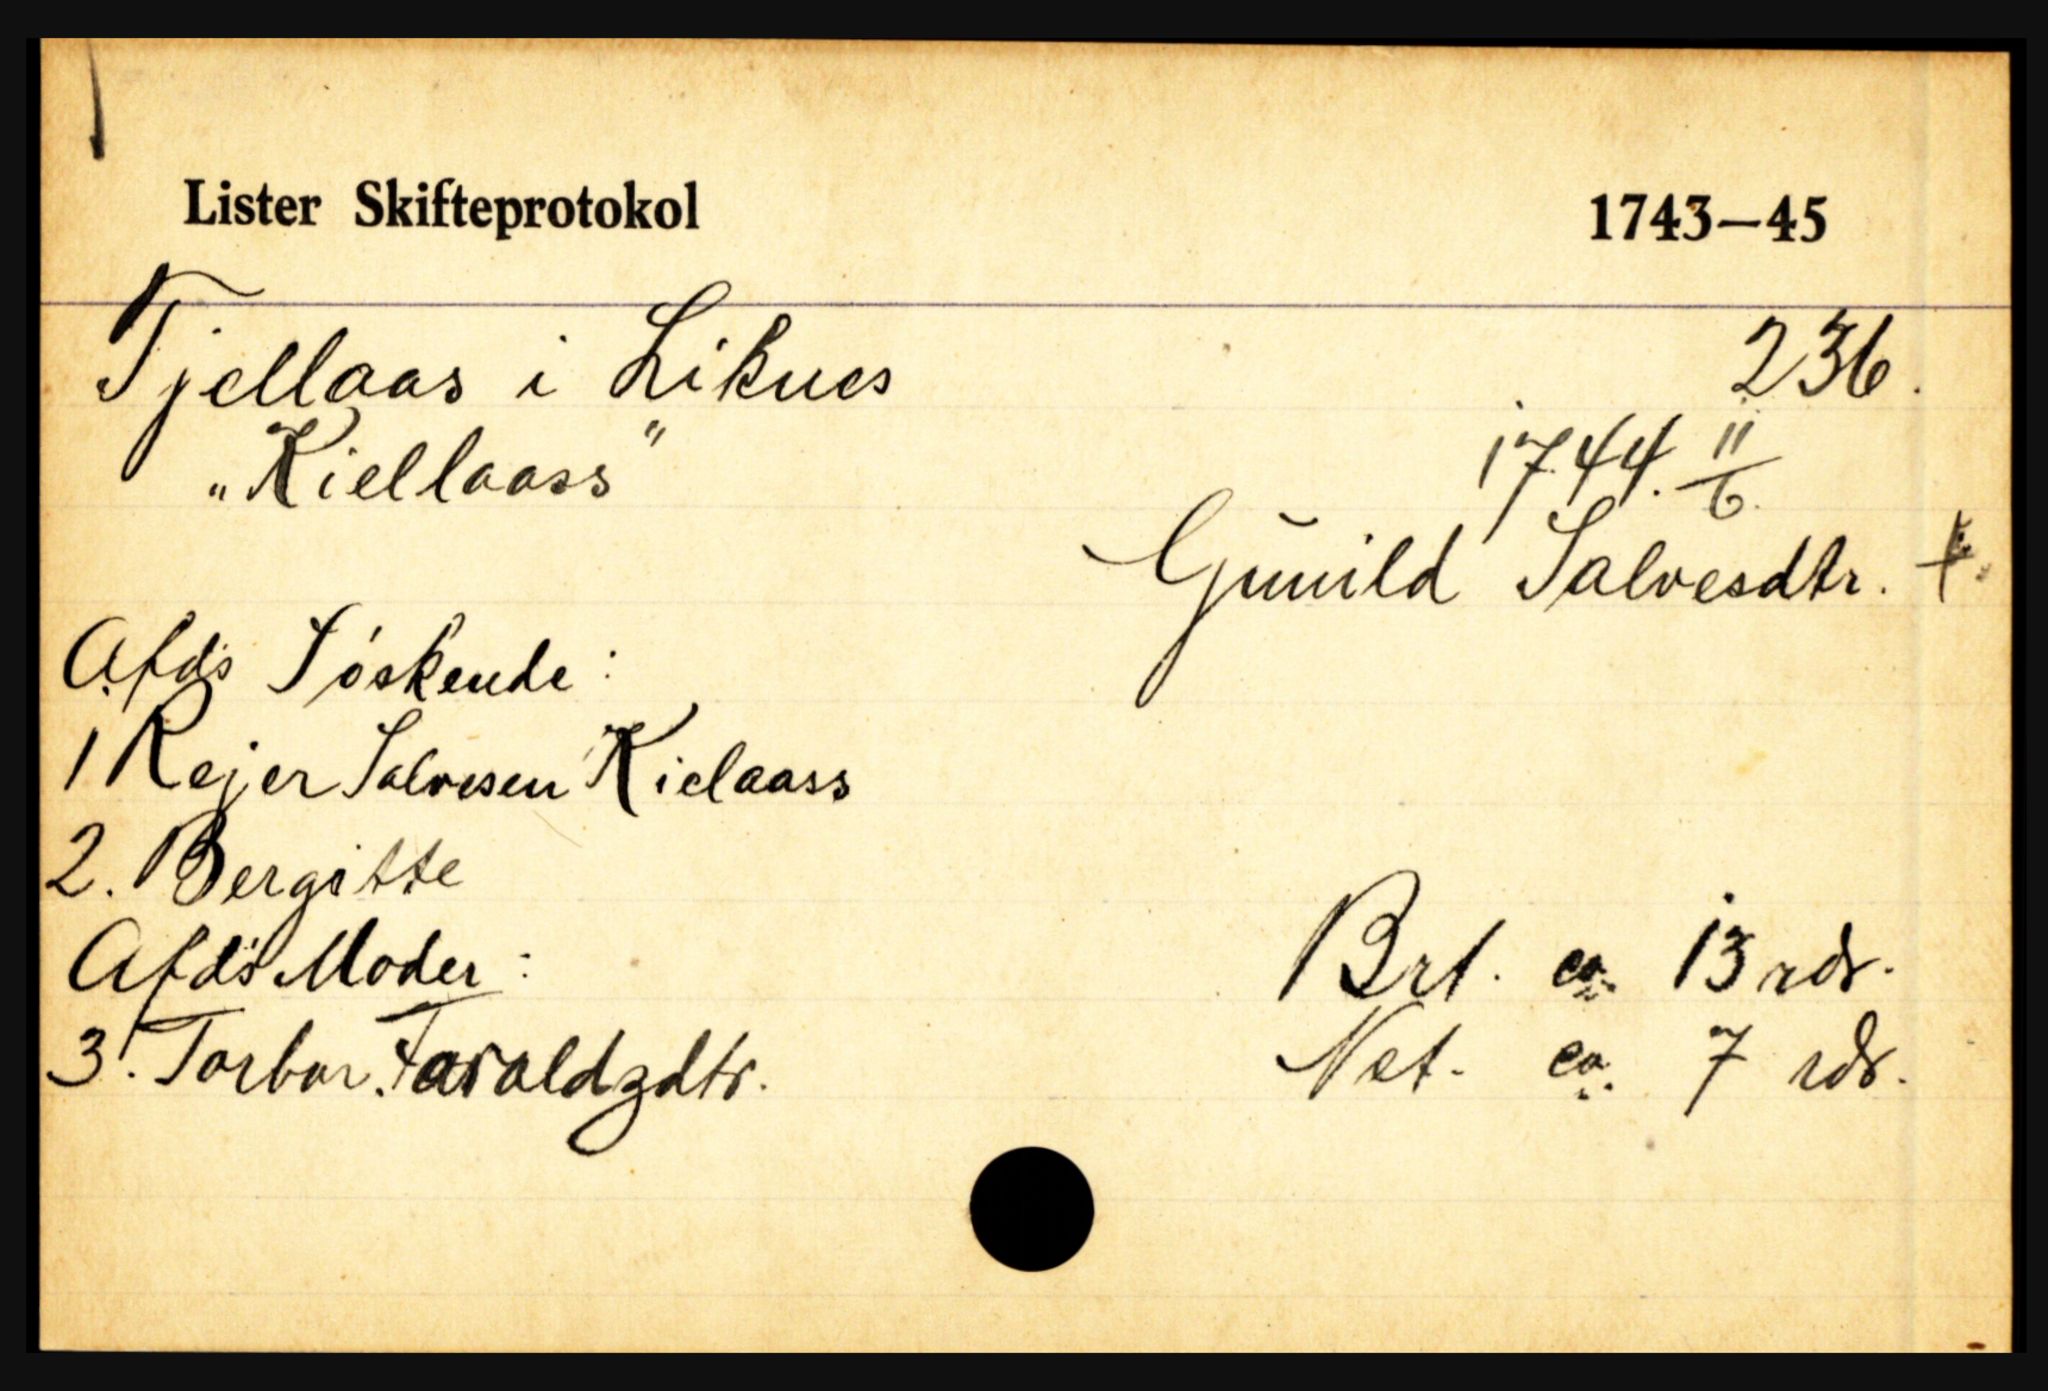 Lister Skifteprotokol 1743—45
Tjellaas i Liknes 236.
„Kiellaass"
1744. 11/6.
Gunild Salvesdtr. †.
Afd's Søskende:
1 Rejer Salvesen Kielaass
2. Bergitte
Afd's Moder:
3. Torbor Taraldzdtr.
Brt. ca. 13 rdr.
Net. ca. 7 rdr.